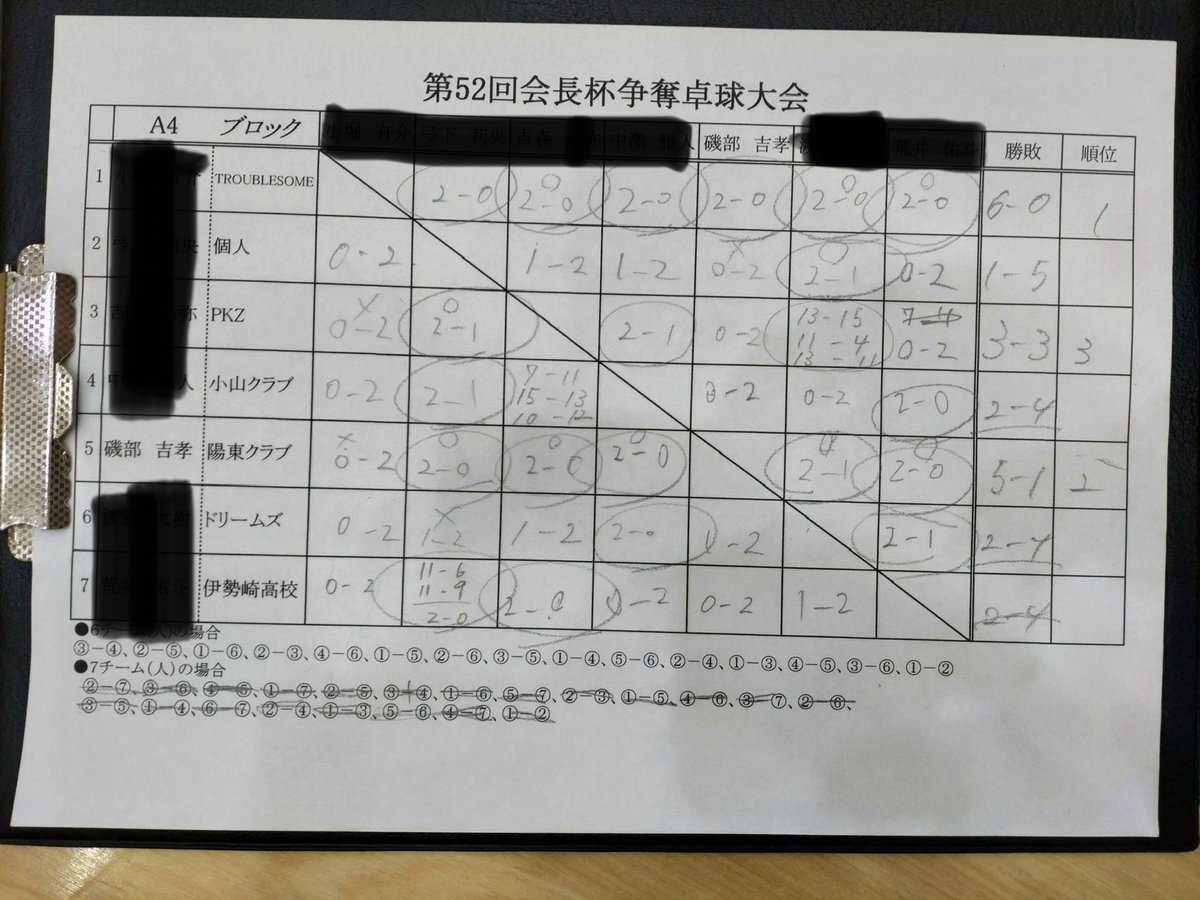 第52回会長杯争奪卓球大会
A4 ブロック 磯部 吉孝 勝敗 順位
1 TROUBLESOME 2-0 2-0 2-0 2-0 2-0 2-0 6-0 1
2 個人 0-2 1-2 1-2 0-2 2-1 0-2 1-5
3 PKZ 0-2 2-1 2-1 0-2 13-15 11-4 13-11 0-2 3-3 3
4 小山クラブ 0-2 2-1 7-11 15-13 10-12 0-2 0-2 2-0 2-4
5 磯部 吉孝 陽東クラブ 0-2 2-0 2-0 2-0 2-1 2-0 5-1 2
6 ドリームズ 0-2 1-2 1-2 2-0 1-2 2-1 2-4
7 伊勢崎高校 0-2 11-6 11-9 2-0 2-0 0-2 0-2 1-2 2-4
●6チーム(人)の場合
③-④、②-⑤、①-⑥、②-③、④-⑥、①-⑤、②-⑥、③-⑤、①-④、⑤-⑥、②-④、①-③、④-⑤、③-⑥、①-②
●7チーム(人)の場合
②-⑦、③-⑥、④-⑤、①-⑦、②-⑤、③-④、①-⑥、⑤-⑦、②-③、①-⑤、④-⑥、③-⑦、②-⑥、
③-⑤、①-④、⑥-⑦、②-④、①-③、⑤-⑥、④-⑦、①-②